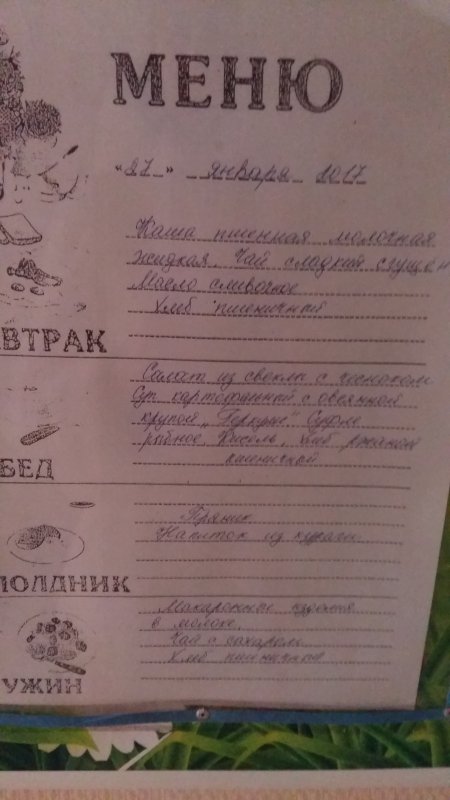 МЕНЮ
«27» января 2017
Каша пшенная молочная
жидкая. Чай сладкий сгущен
Масло сливочное
Хлеб пшеничный
ВТРАК
Салат из свеклы с чесноком
Суп картофельный с овсяной
крупой „Геркулес" Суфле
рыбное Кисель. Хлеб ржаной
пшеничный
БЕД
Пряник
Напиток из кураги
ПОЛДНИК
Макаронные изделия
в молоке.
Чай с сахаром
Хлеб пшеничный
УЖИН